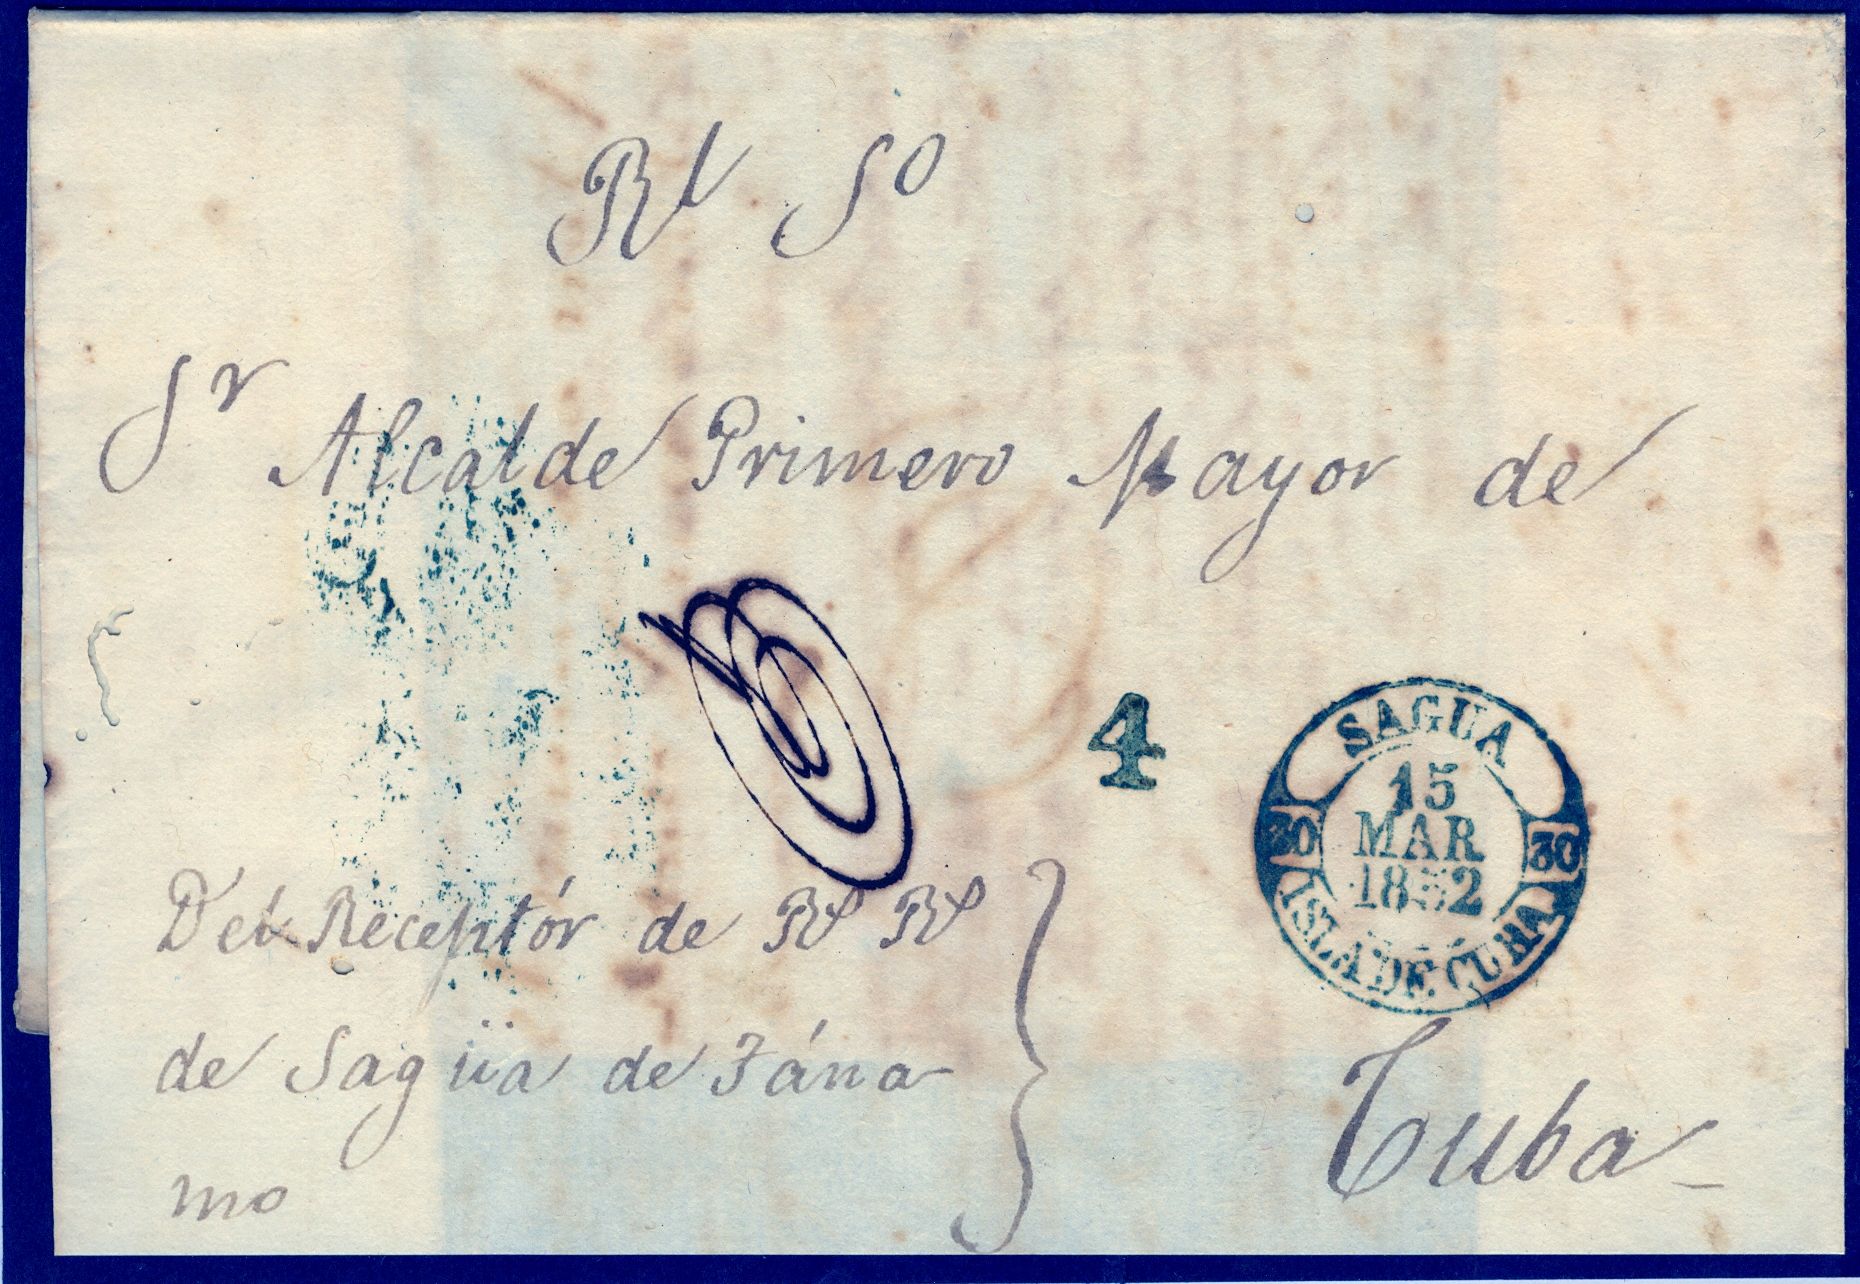 Rl So
Sr Alcalde Primero Mayor de
4
SAGUA
15
MAR
1852
30 30
ISLA DE CUBA
Del Receptór de Rs Rs
de Sagüa de Tána
mo
Cuba